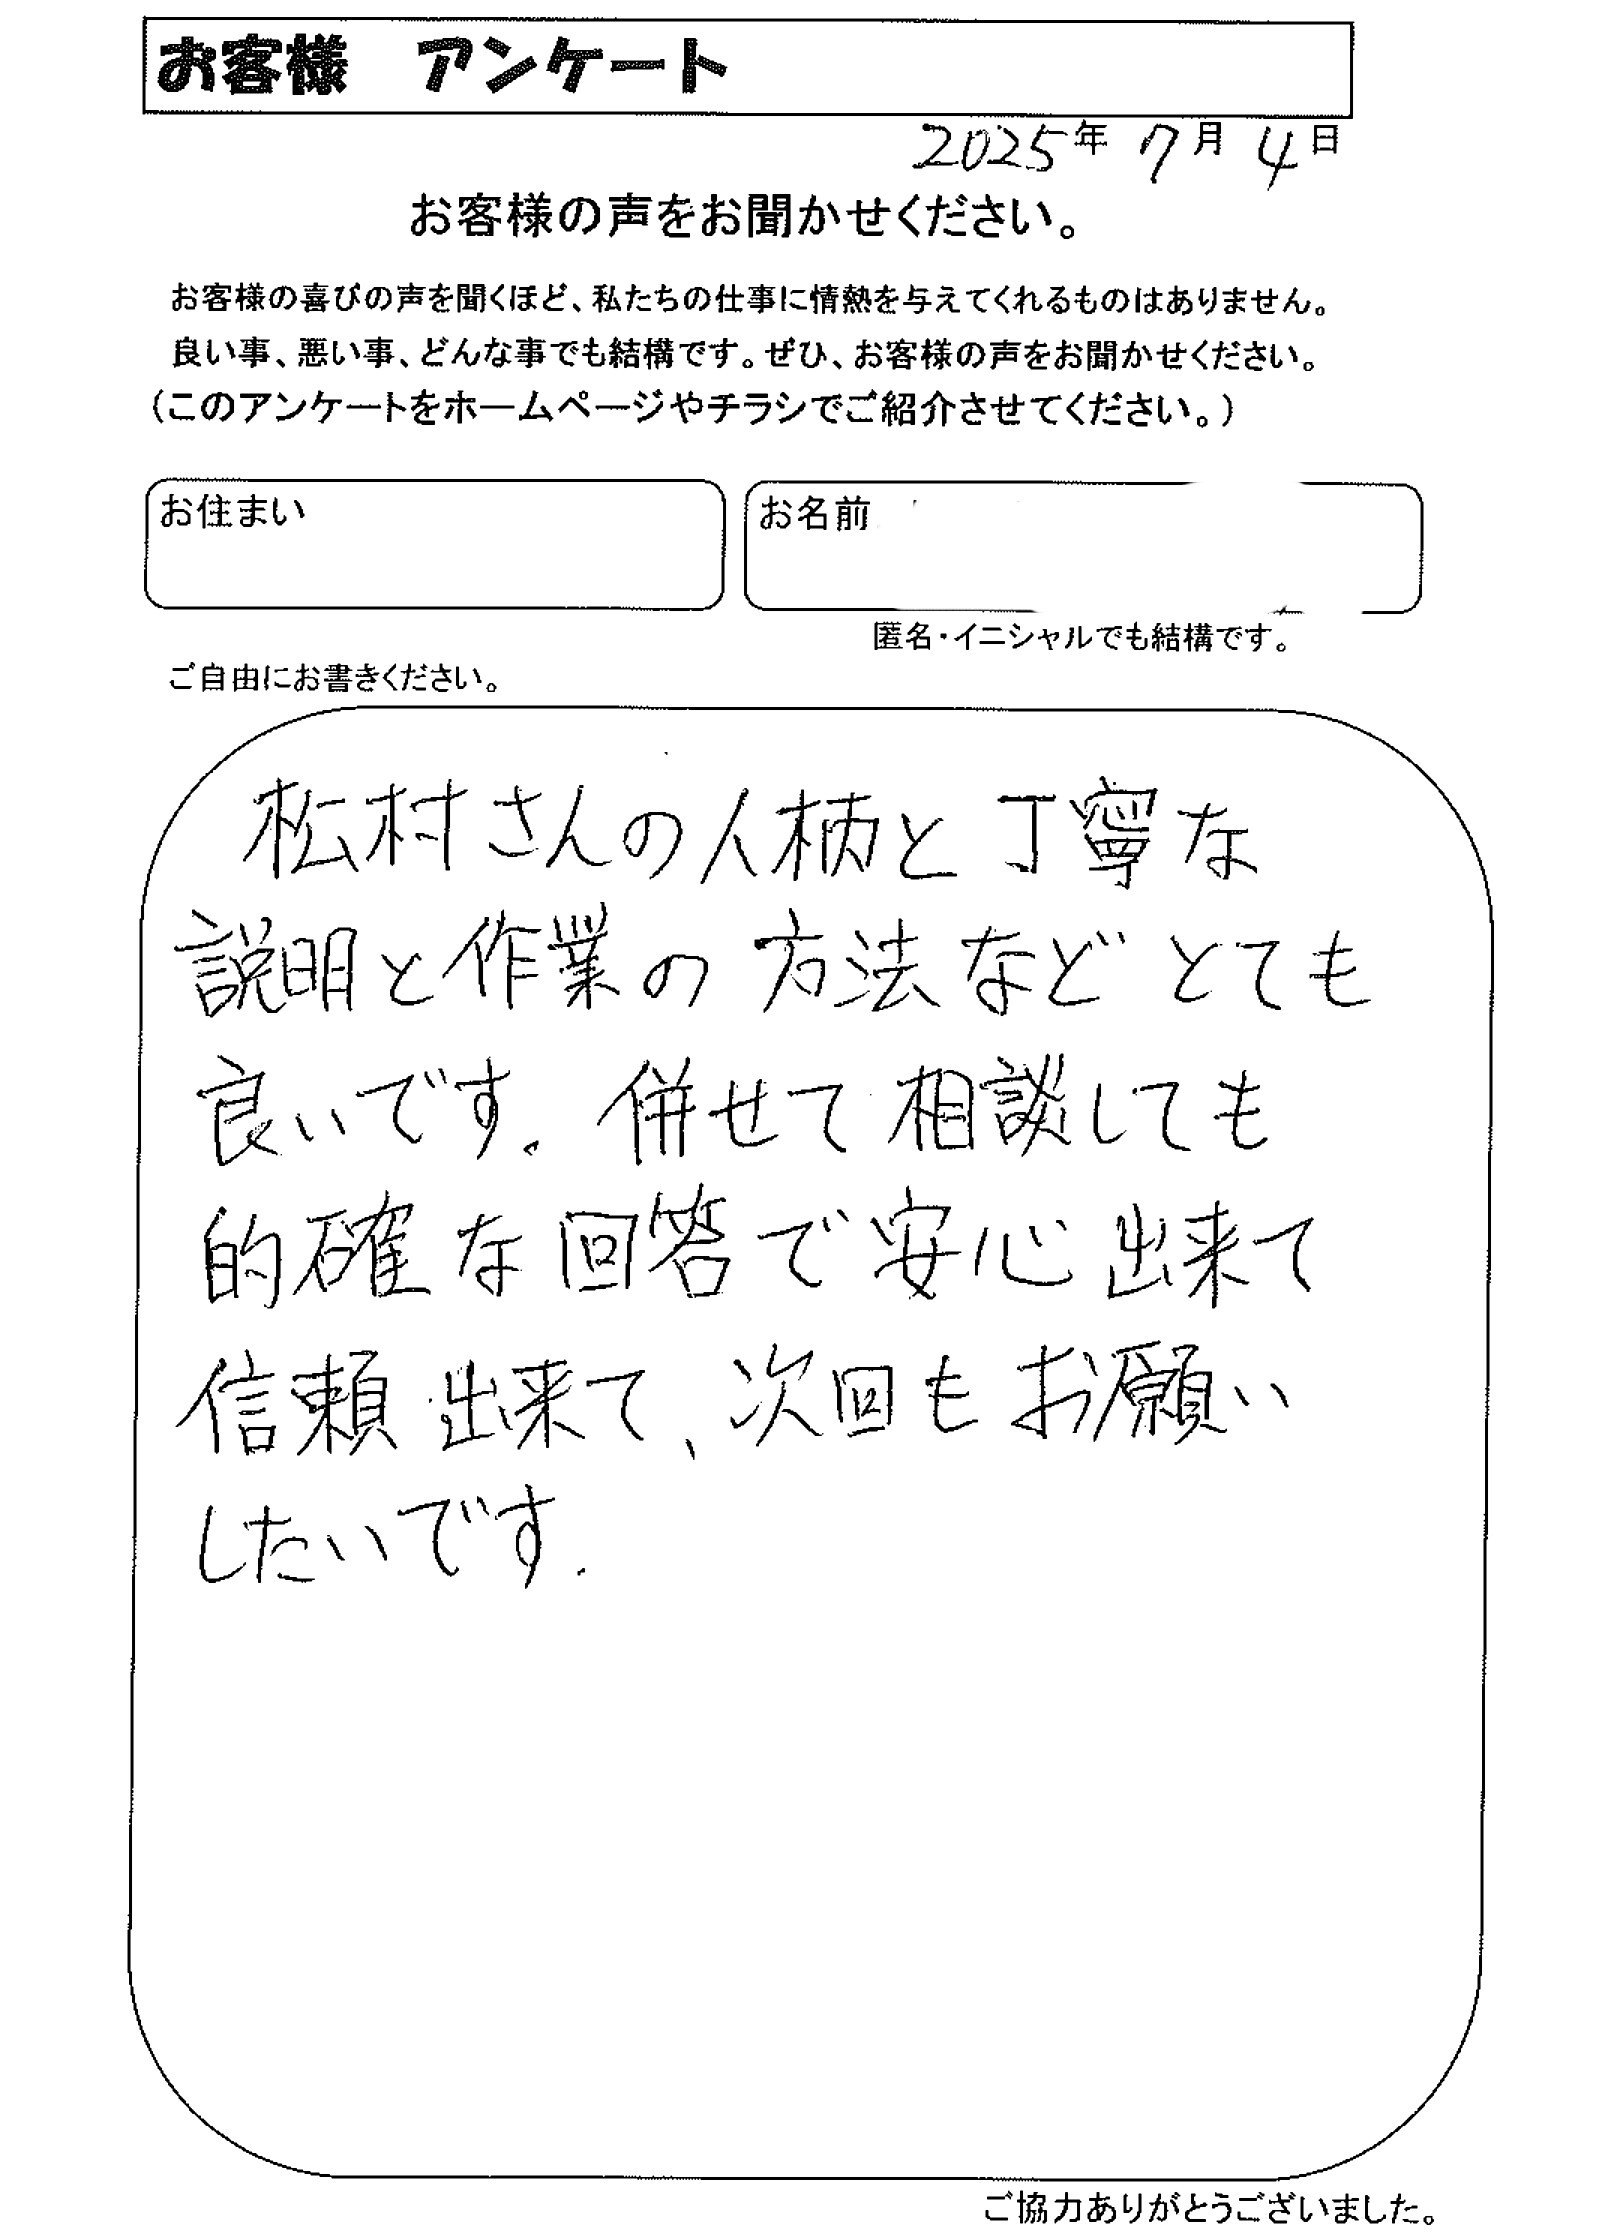 お客様　アンケート
2025年 7月 4日
お客様の声をお聞かせください。
お客様の喜びの声を聞くほど、私たちの仕事に情熱を与えてくれるものはありません。
良い事、悪い事、どんな事でも結構です。ぜひ、お客様の声をお聞かせください。
（このアンケートをホームページやチラシでご紹介させてください。）
お住まい
お名前
匿名・イニシャルでも結構です。
ご自由にお書きください。
松村さんの人柄と丁寧な
説明と作業の方法などとても
良いです。併せて相談しても
的確な回答で安心出来て
信頼出来て、次回もお願い
したいです.
ご協力ありがとうございました。